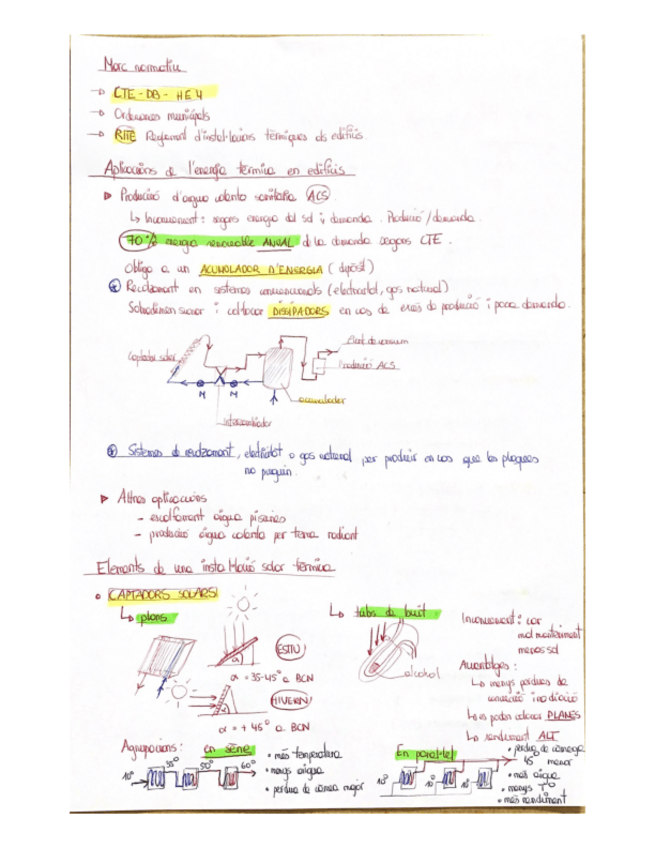 Marc normatiu
→ CTE-DB-HE4
→ Ordenances municipals
→ RITE Reglament d'instal·lacions tèrmiques als edificis
Aplicacions de l'energia tèrmica en edificis
Producció d'aigua calenta sanitària ACS
↳ Inconvenient: segons energia del sol i demanda. Producció/demanda.
70% energia renovable ANUAL de la demanda segons CTE.
Obliga a un ACUMULADOR D'ENERGIA (dipòsit)
* Recolzament en sistemes convencionals (electricitat, gas natural)
Sobredimensionar i col·locar DISSIPADORS en cas de excés de producció i poca demanda.
Captador solar
Punt de consum
Producció ACS
M M
acumulador
Intercanviador
* Sistemes de recolzament, electricitat o gas natural per produir en cas que les plaques
no puguin.
Altres aplicacions
- escalfament aigua piscines
- producció aigua calenta per terra radiant
Elements de una instal·lació solar tèrmica
• CAPTADORS SOLARS
↳ plans
ESTIU
α
α = 35-45° a BCN
HIVERN
α = + 45° a BCN
↳ tubs de buit
alcohol
Inconvenient: car
mal manteniment
menys sol
Avantatges:
↳ menys pèrdues de
convecció i radiació
↳ es poden col·locar PLANES
↳ rendiment ALT
Agrupacions: en sèrie
10° 35° 50° 60°
• més temperatura
• menys aigua
• pèrdua de càrrega major
En paral·lel
10° 10° 10° 45°
• pèrdua de càrrega
menor
• més aigua
• menys T°
• més rendiment